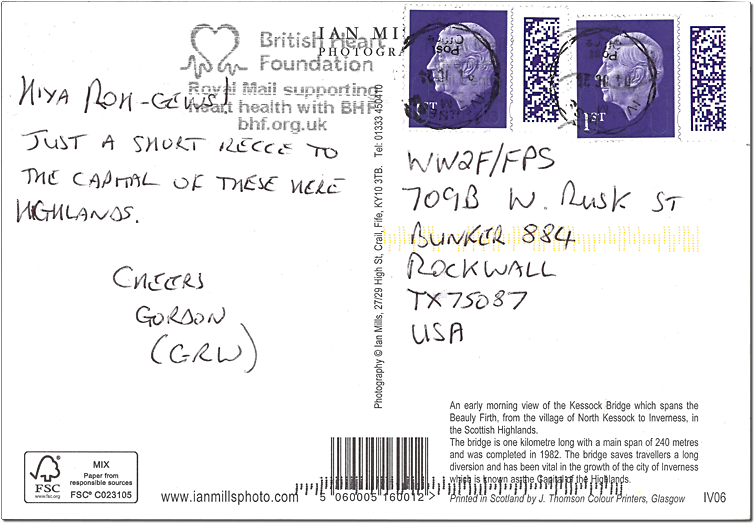 British Heart
Foundation
Royal Mail supporting
heart health with BHF
bhf.org.uk
IAN MI
PHOTOGR
HIYA ROH-GEWS!
JUST A SHORT RECCE TO
THE CAPITAL OF THESE HERE
HIGHLANDS.
CHEERS
GORDON
(GRW)
Photography © Ian Mills, 27/29 High St, Crail, Fife, KY10 3TB. Tel: 01333 450410
1ST
1ST
WW2F/FPS
709B W. RUSK ST
BUNKER 884
ROCKWALL
TX75087
USA
An early morning view of the Kessock Bridge which spans the
Beauly Firth, from the village of North Kessock to Inverness, in
the Scottish Highlands.
The bridge is one kilometre long with a main span of 240 metres
and was completed in 1982. The bridge saves travellers a long
diversion and has been vital in the growth of the city of Inverness
which is known as the Capital of the Highlands.
Printed in Scotland by J. Thomson Colour Printers, Glasgow
IV06
FSC
www.fsc.org
MIX
Paper from
responsible sources
FSC® C023105
www.ianmillsphoto.com
5 060005 160012 >